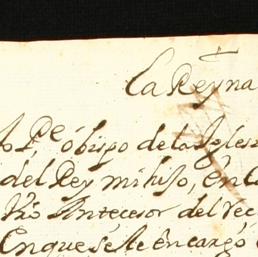 la Reyna
Pe obispo de la Iglesi
del Rey mi hijo, en la
Vro Antecesor del rec
Enque se le encargó